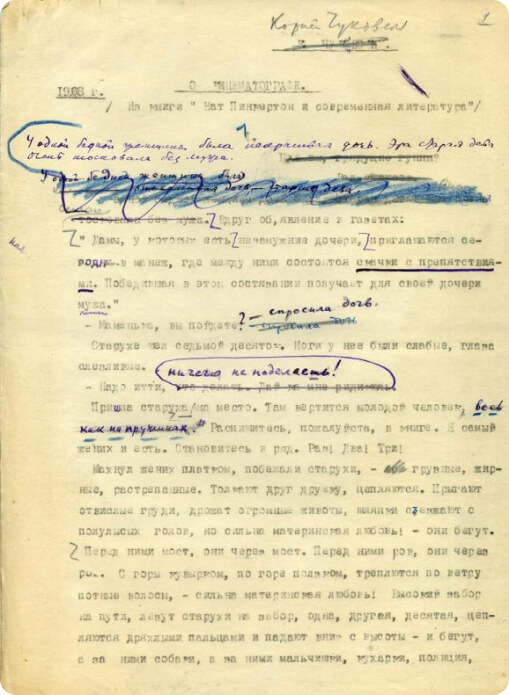 Корней Чуковск
1
1908 г.
О КИНЕМАТОГРАФЕ.
/ Из книги " Нат Пинкертон и современная литература"/
У одной бедной женщины была некрасивая дочь. Эта старая дева
очень тосковала без мужа.
тосковала без мужа. Вдруг об,явление в газетах:
" Дамы, у которых есть незамужние дочери, приглашаются се-
в манеж, где между ними состоятся скачки с препятствия-
ми. Победившая в этом состязании получает для своей дочери
мужа."
- Маменька, вы пойдете? - спросила дочь.
Старухе шел седьмой десяток. Ноги у нее были слабые, глаза
слезливые.
ничего не поделаешь!
- Надо итти, что делать. Дай ка мне
Пришла старуха на место. Там вертится молодой человек, весь
как на пружинах. " Распишитесь, пожалуйста, в книге. Я самый
жених и есть. Становитесь в ряд. Раз! Два! Три!
Махнул жених платком, побежали старухи, - грузные, жир-
ные, растрепанные. Толкают друг дружку, цепляются. Прыгают
отвислые груди, дрожат огромные животы, шляпки съезжают с
полулысых голов, но сильна материнская любовь! - они бегут.
Перед ними мост, они через мост. Перед ними ров, они через
ров. С горы кувырком, по горе ползком, треплются по ветру
потные волосы, - сильна материнская любовь! Высокий забор
на пути, лезут старухи на забор, одна, другая, десятая, цеп-
ляются дряхлыми пальцами и падают вниз с высоты - и бегут,
а за ними собаки, а за ними мальчишки, кухарки, полиция,